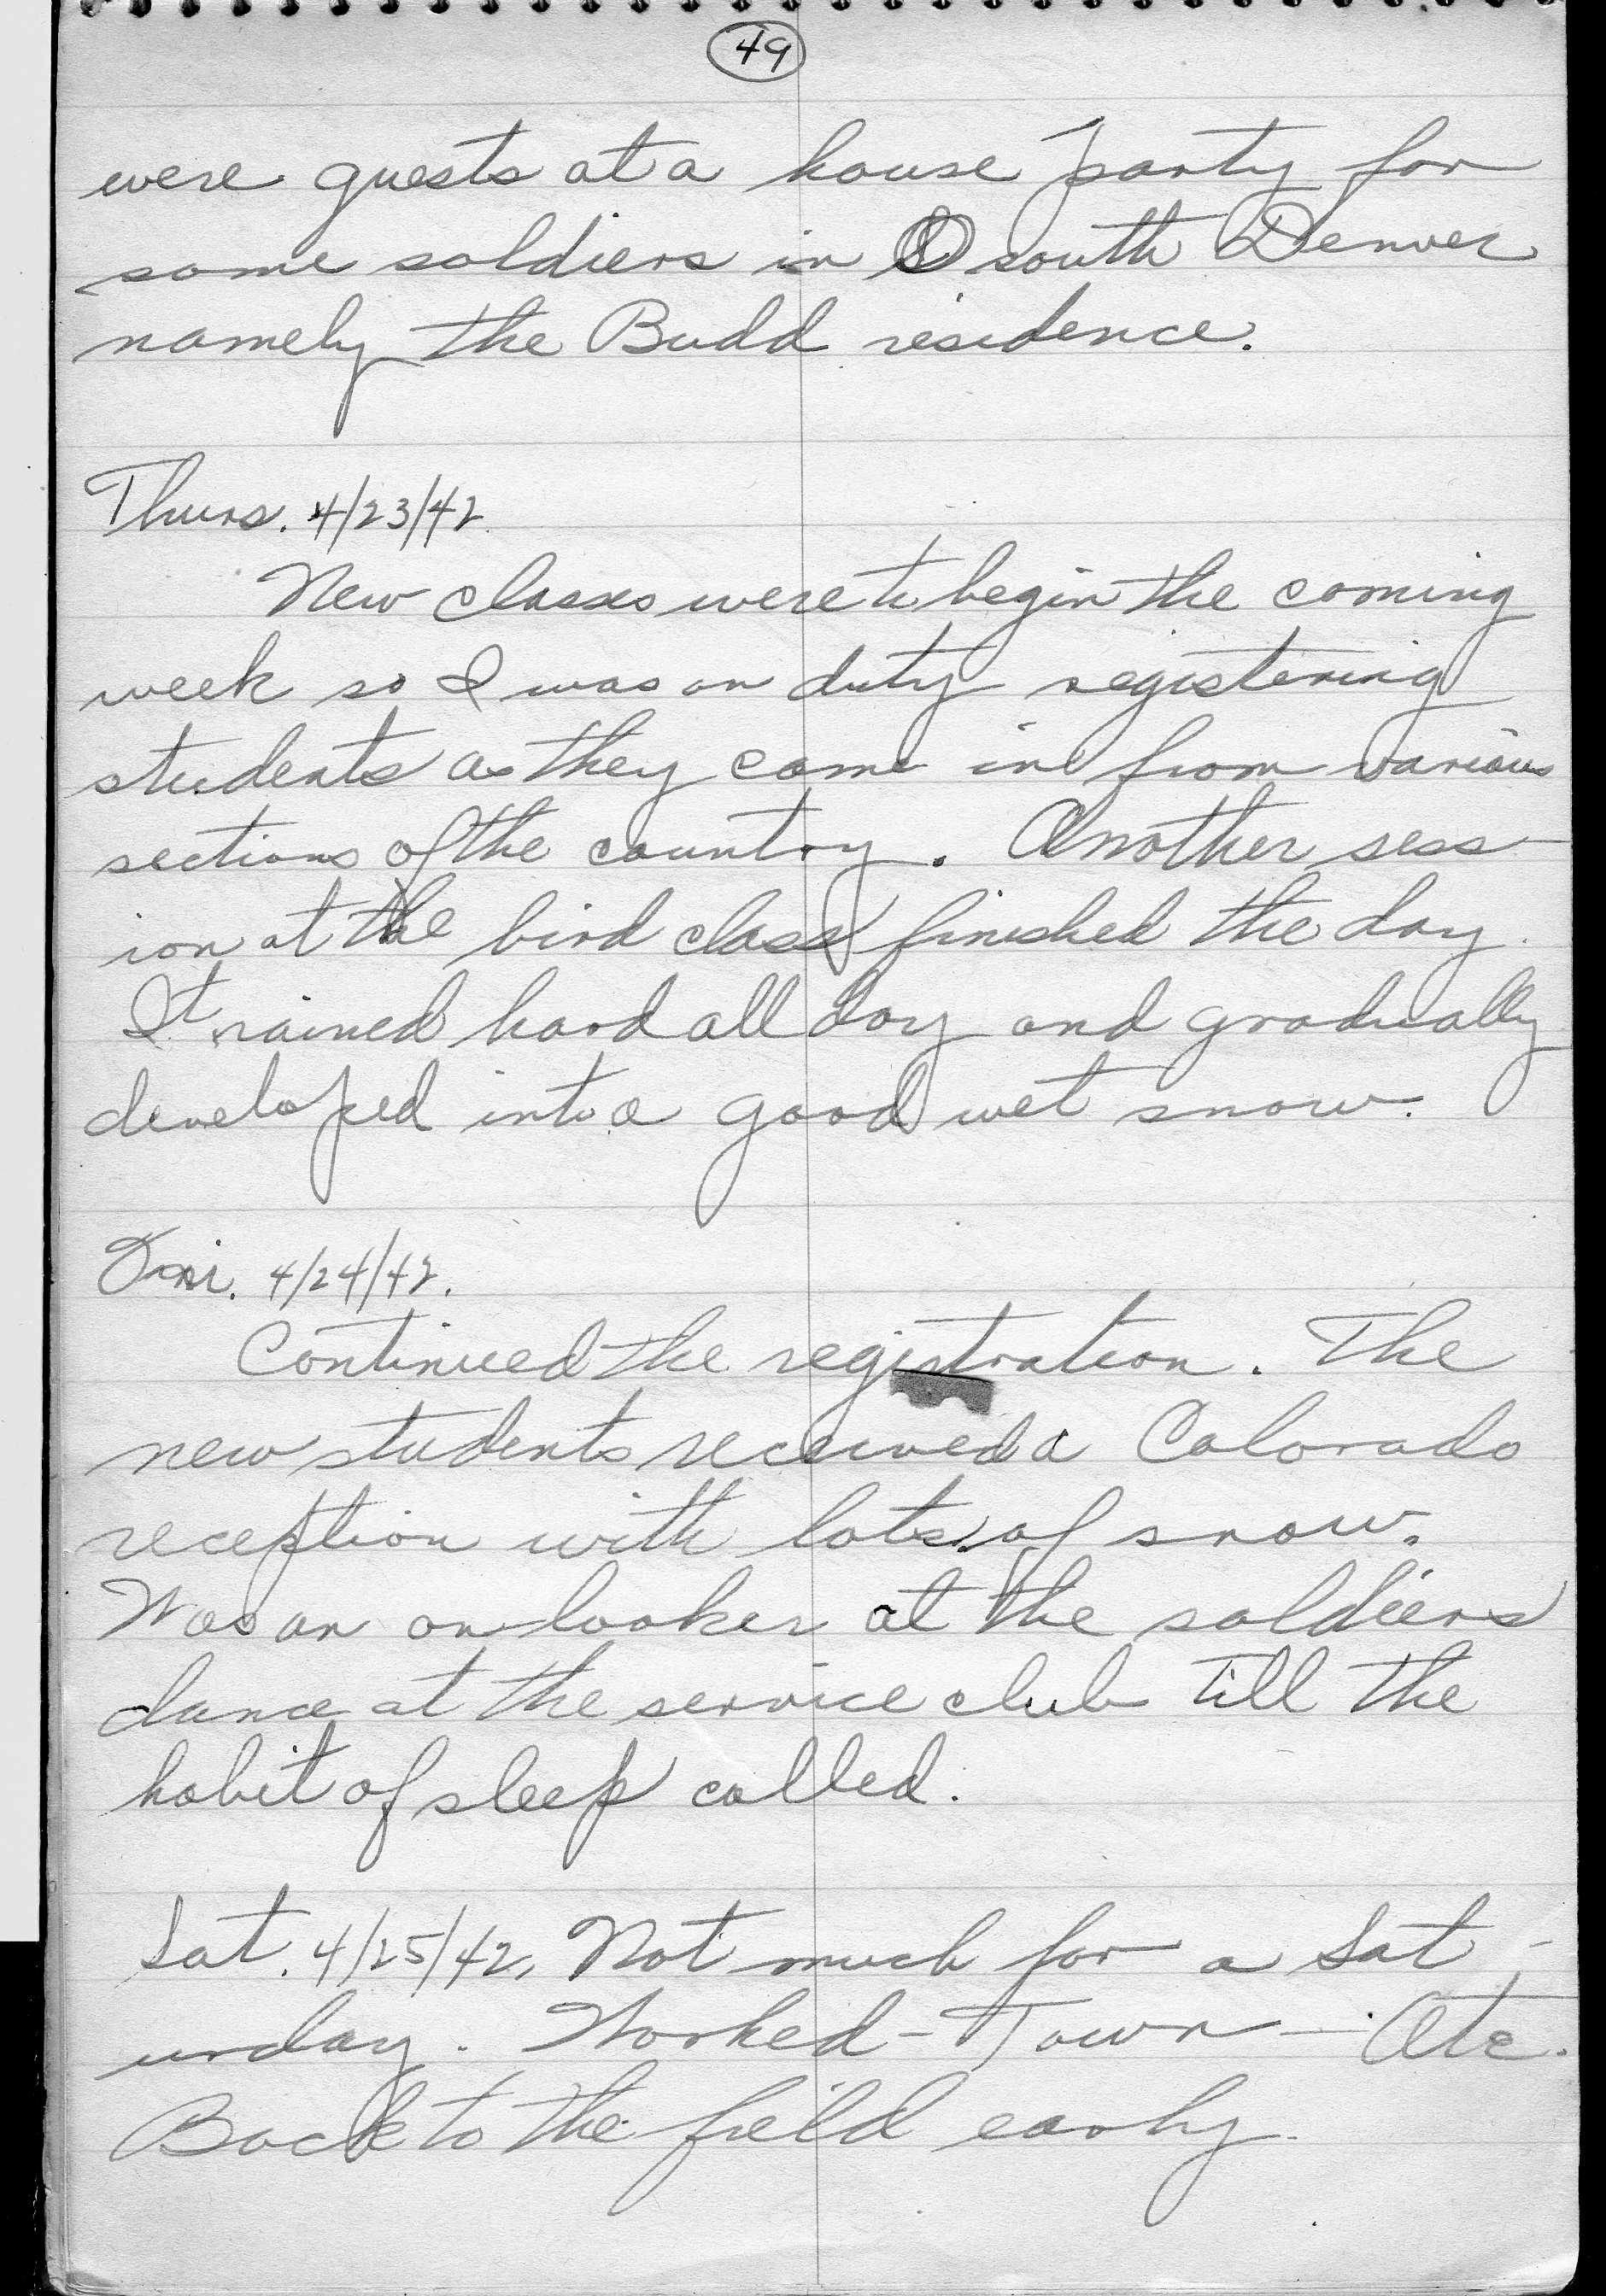 49
were guests at a house party for
some soldiers in south Denver
namely the Budd residence.
Thurs. 4/23/42.
New classes were to begin the coming
week so I was on duty registering
students as they came in from various
sections of the country. Another sess-
ion at the bird class finished the day.
It rained hard all day and gradually
developed into a good wet snow.
Fri. 4/24/42.
Continued the registration. The
new students received a Colorado
reception with lots of snow.
Was an onlooker at the soldiers
dance at the service club till the
habit of sleep called.
Sat. 4/25/42. Not much for a Sat-
urday. Worked - Town - Ate.
Back to the field early.